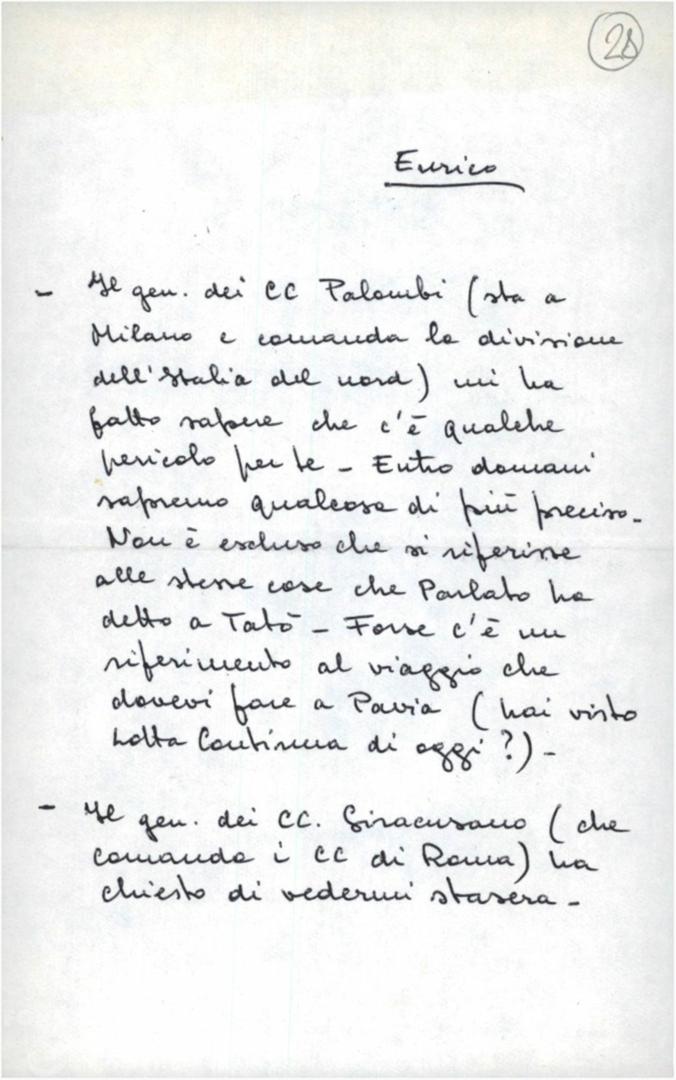 28
Enrico
- Il gen. dei CC Palombi (sta a
Milano e comanda la divisione
dell'Italia del nord) mi ha
fatto sapere che c'è qualche
pericolo per te - Entro domani
sapremo qualcosa di più preciso -
Non è escluso che si riferisse
alle stesse cose che Parlato ha
detto a Tatò - Forse c'è un
riferimento al viaggio che
dovevi fare a Pavia (hai visto
Lotta Continua di oggi?) -
- Il gen. dei CC. Siracusano (che
comanda i CC di Roma) ha
chiesto di vedermi stasera -